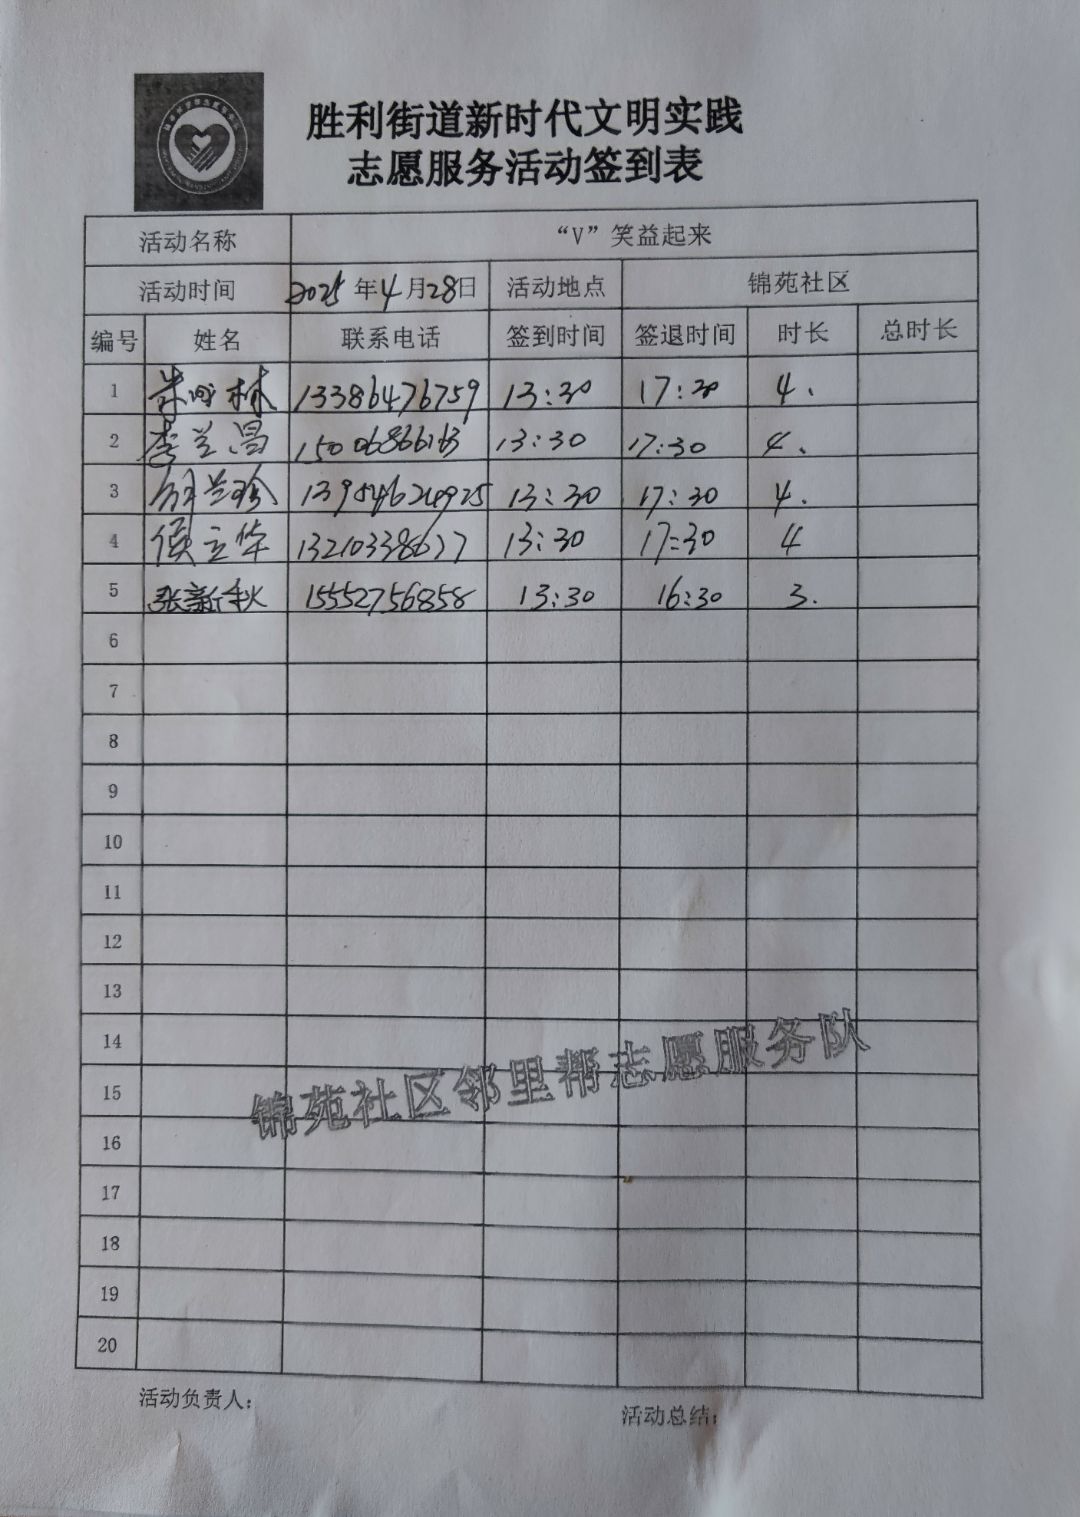 胜利街道新时代文明实践
志愿服务活动签到表
活动名称 “V”笑益起来
活动时间 2025年4月28日 活动地点 锦苑社区
编号 姓名 联系电话 签到时间 签退时间 时长 总时长
1 林 13386476759 13:30 17:30 4.
2 李兰昌 15006866163 13:30 17:30 4.
3 兰珍 13:30 17:30 4.
4 侯立华 13210338677 13:30 17:30 4
5 张新秋 15552756858 13:30 16:30 3.
6
7
8
9
10
11
12
13
14
15
16
17
18
19
20
锦苑社区邻里帮志愿服务队
活动负责人:
活动总结: